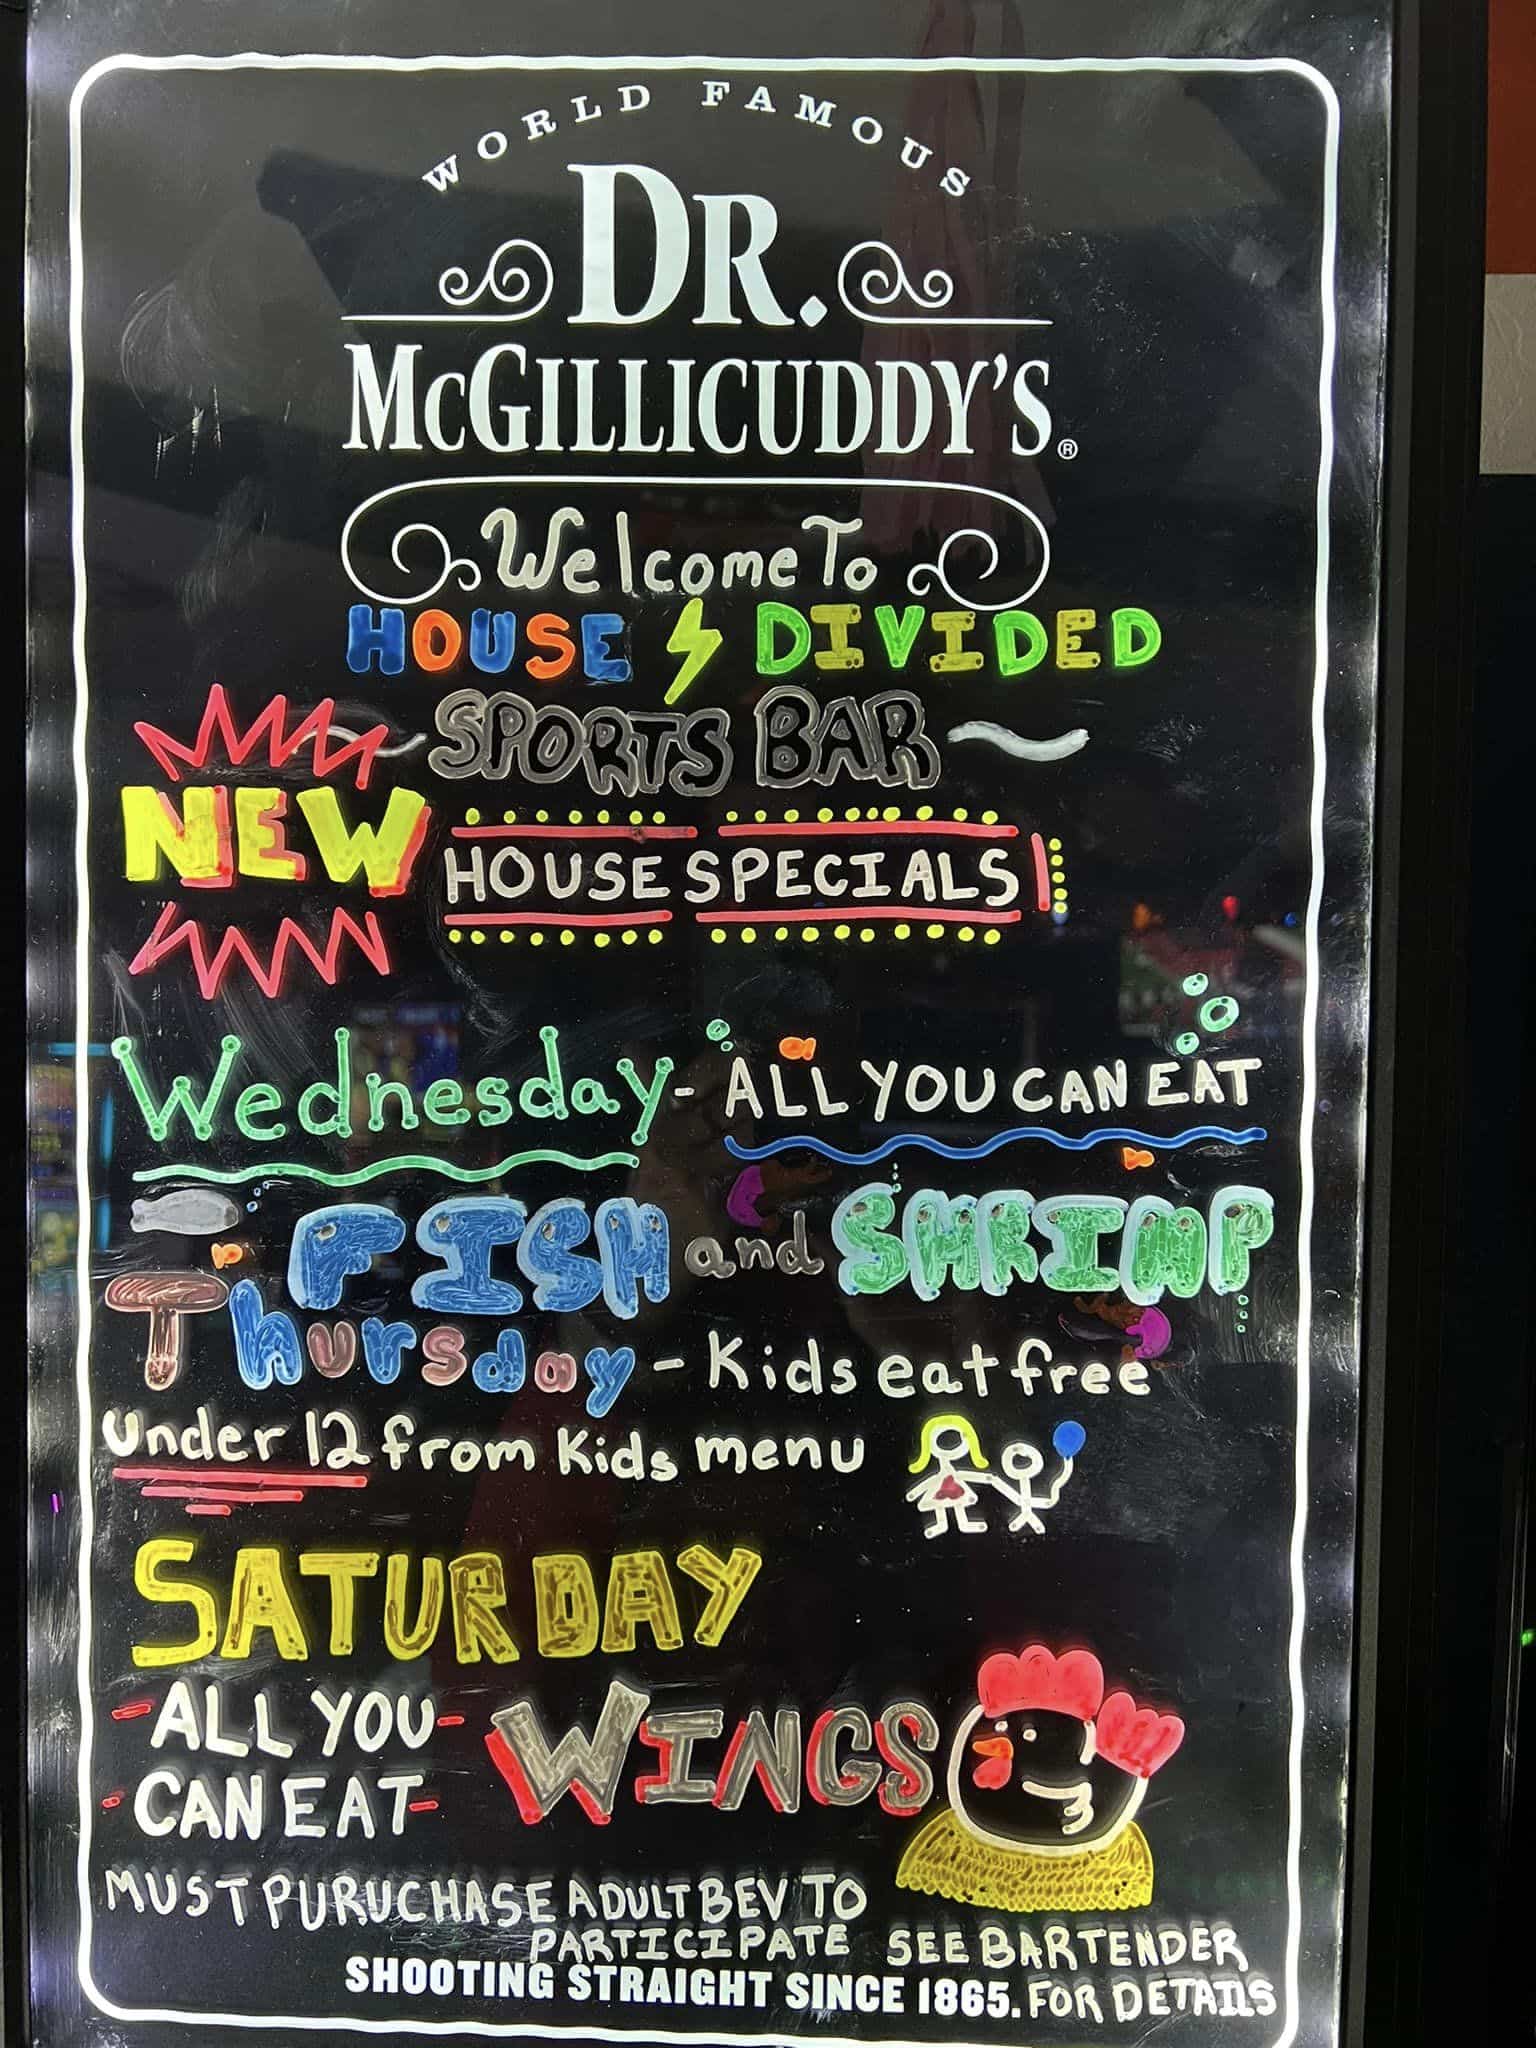 WORLD FAMOUS
DR.
MCGILLICUDDY'S®
Welcome To
HOUSE DIVIDED
SPORTS BAR
NEW HOUSE SPECIALS
Wednesday - ALL YOU CAN EAT
FISH and SHRIMP
Thursday - Kids eat free
Under 12 from Kids menu
SATURDAY
- ALL YOU -
- CAN EAT -
WINGS
MUST PURUCHASE ADULT BEV TO
PARTICIPATE SEE BARTENDER
SHOOTING STRAIGHT SINCE 1865. FOR DETAILS